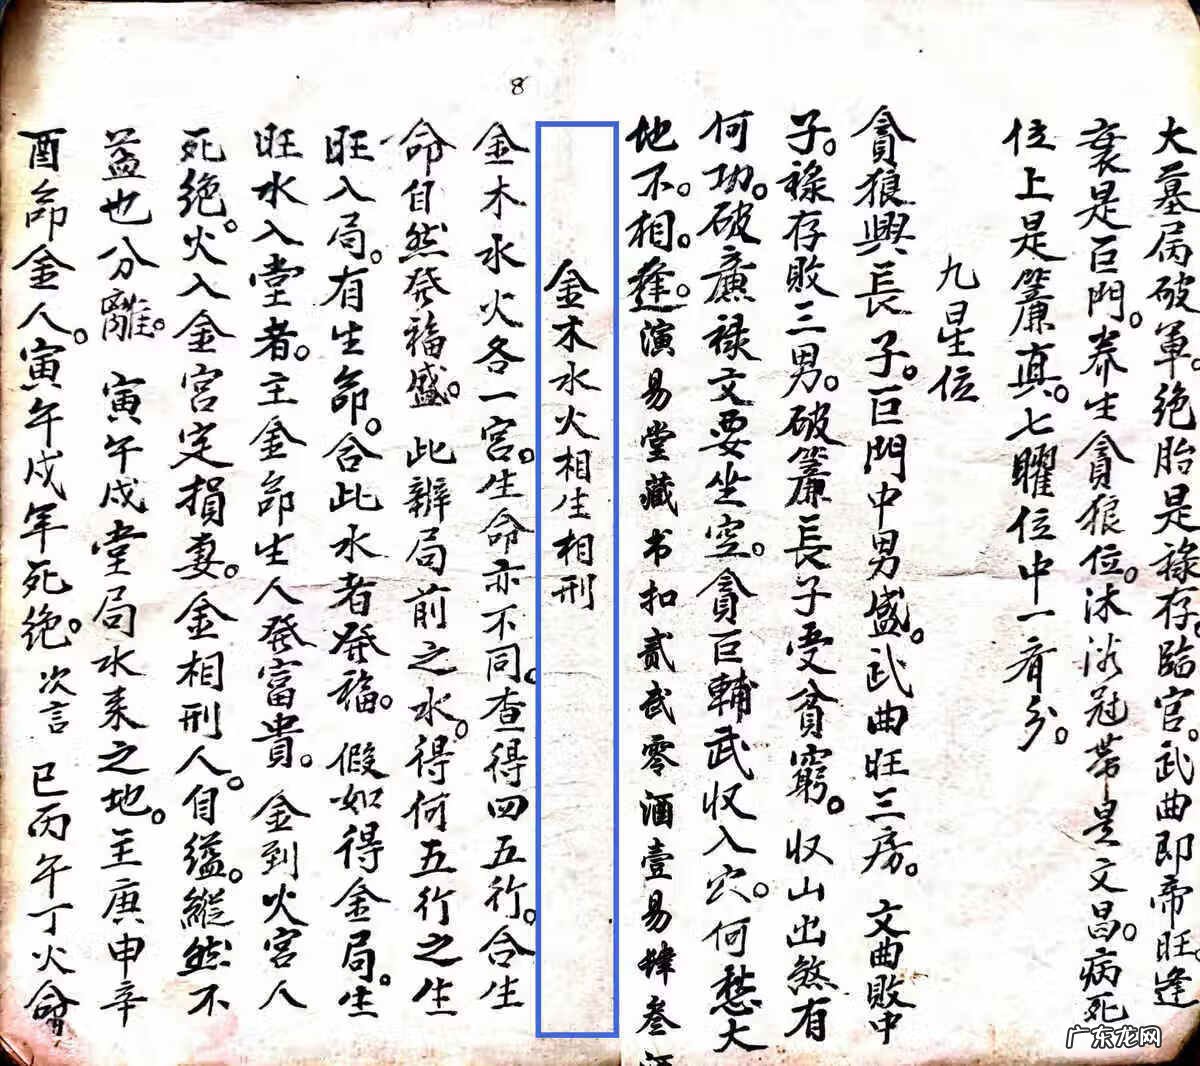 大墓局破軍。绝胎是禄存。臨官。武曲即帝旺。逢
衰是巨門。养生貪狼位。沐浴冠帶是文昌。病死
位上是簾真。七曜位中一看分。
九星位
貪狼興長子。巨門中男盛。武曲旺三房。文曲敗中
子。禄存敗三男。破簾長子受貧窮。收山出煞有
何功。破廉禄文要坐空。貪巨輔武收入穴。何愁大
地不。相。逢。演易堂藏书扣贰贰零酒壹易肆叁酒
金木水火相生相刑
8
金木水火各一宫。生命亦不同。查得四五行。合生
命自然発福盛。此辨局前之水。得何五行之生
旺入局。有生命。合此水者発福。假如得金局。生
旺水入堂者。主金命生人発富貴。金到火宫人
死绝。火入金宫定損妻。金相刑人。自缢。縱然不
益也分離。寅午戌堂局水来之地。主庚申辛
酉命金人。寅午戌年死绝。次言巳丙午丁火命
广东龙网